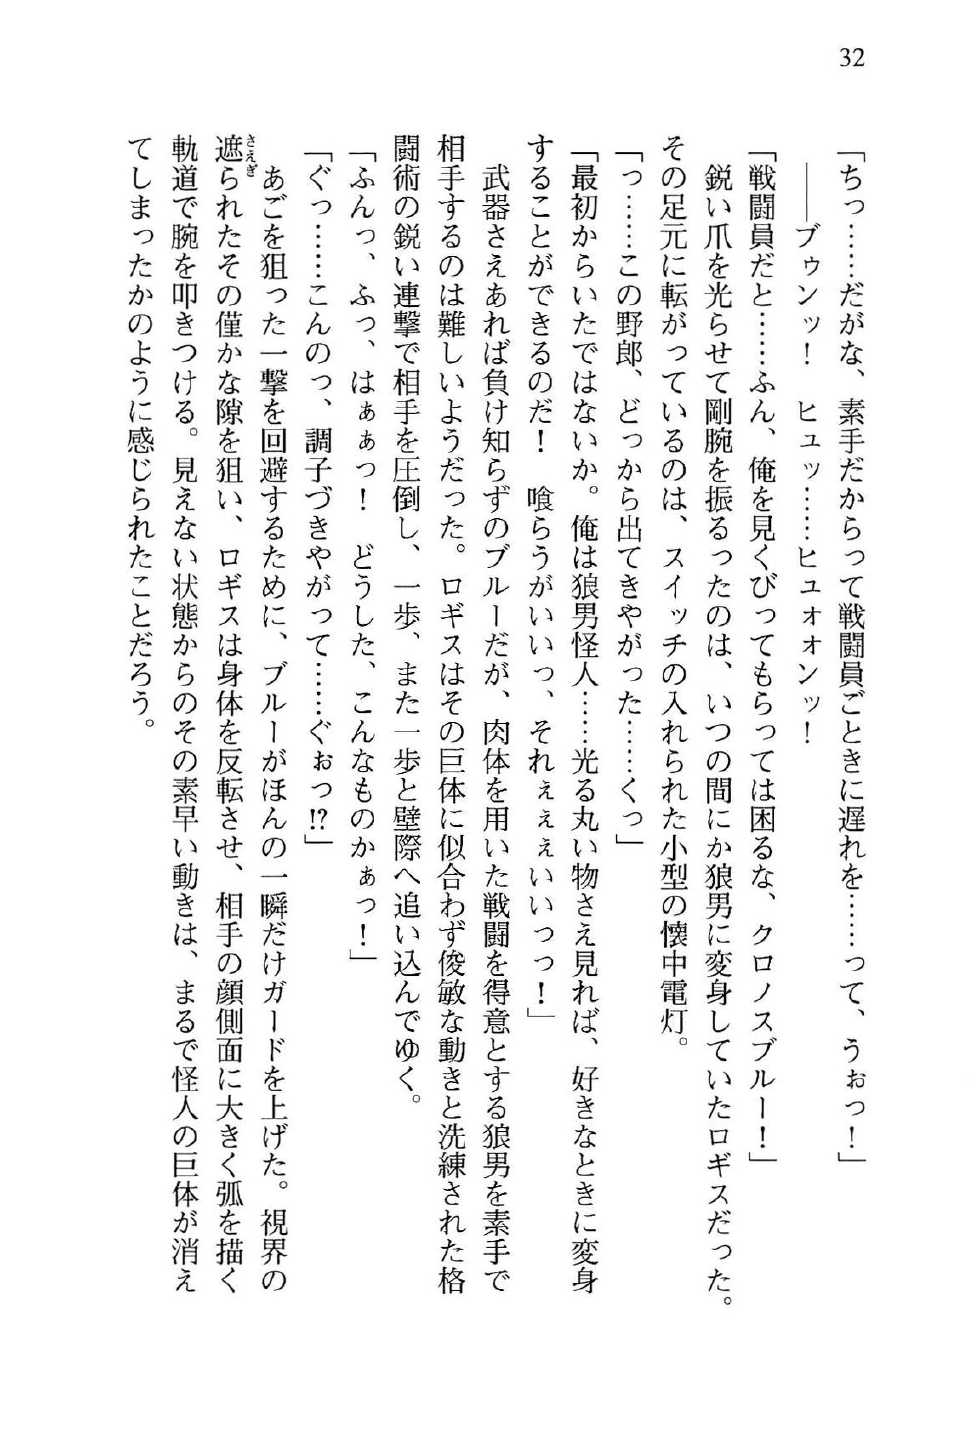 32
「ちっ……だがな、素手だからって戦闘員ごときに遅れを……って、うぉっ！」
――ブゥンッ！　ヒュッ……ヒュォオンッ！
「戦闘員だと……ふん、俺を見くびってもらっては困るな、クロノスブルー！」
鋭い爪を光らせて剛腕を振るったのは、いつの間にか狼男に変身していたロギスだった。
その足元に転がっているのは、スイッチの入れられた小型の懐中電灯。
「っ……この野郎、どっから出てきやがった……くっ」
「最初からいたではないか。俺は狼男怪人……光る丸い物さえ見れば、好きなときに変身
することができるのだ！　喰らうがいいっ、それぇぇぇいいっっ！」
武器さえあれば負け知らずのブルーだが、肉体を用いた戦闘を得意とする狼男を素手で
相手するのは難しいようだった。ロギスはその巨体に似合わず俊敏な動きと洗練された格
闘術の鋭い連撃で相手を圧倒し、一歩、また一歩と壁際へ追い込んでゆく。
「ふんっ、ふっ、はぁぁっ！　どうした、こんなものかぁっ！」
「ぐっ……こんのっ、調子づきやがって……ぐぉっ!?」
あごを狙った一撃を回避するために、ブルーがほんの一瞬だけガードを上げた。視界の
遮さえぎられたその僅かな隙を狙い、ロギスは身体を反転させ、相手の顔側面に大きく弧を描く
軌道で腕を叩きつける。見えない状態からのその素早い動きは、まるで怪人の巨体が消え
てしまったかのように感じられたことだろう。